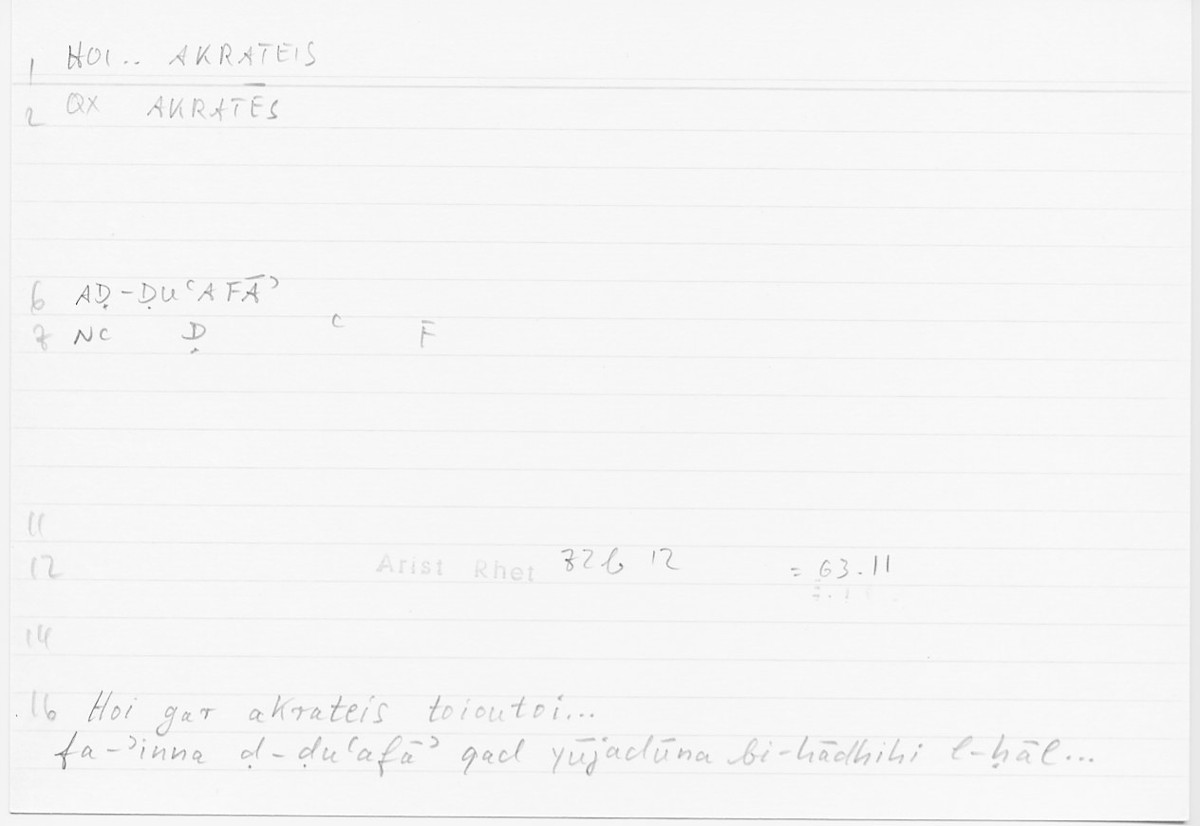 1 HOI.. AKRATEIS
2 QX AKRATĒS
6 AḌ-ḌUʿAFĀʾ
7 NC Ḍ ʿ F
11
12 Arist Rhet 72b 12 = 63.11
14
16 Hoi gar akrateis toioutoi...
fa-ʾinna ḍ-ḍuʿafāʾ qad yūjadūna bi-hādhihi l-ḥāl...